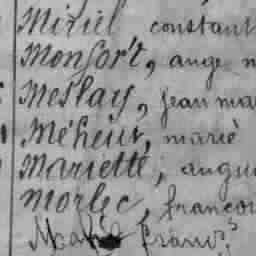 Miriel constant
Monfort, ange m
Meslay, jean mar
Méheut, marie
Mariette, augu
Morlec, françoi
franç